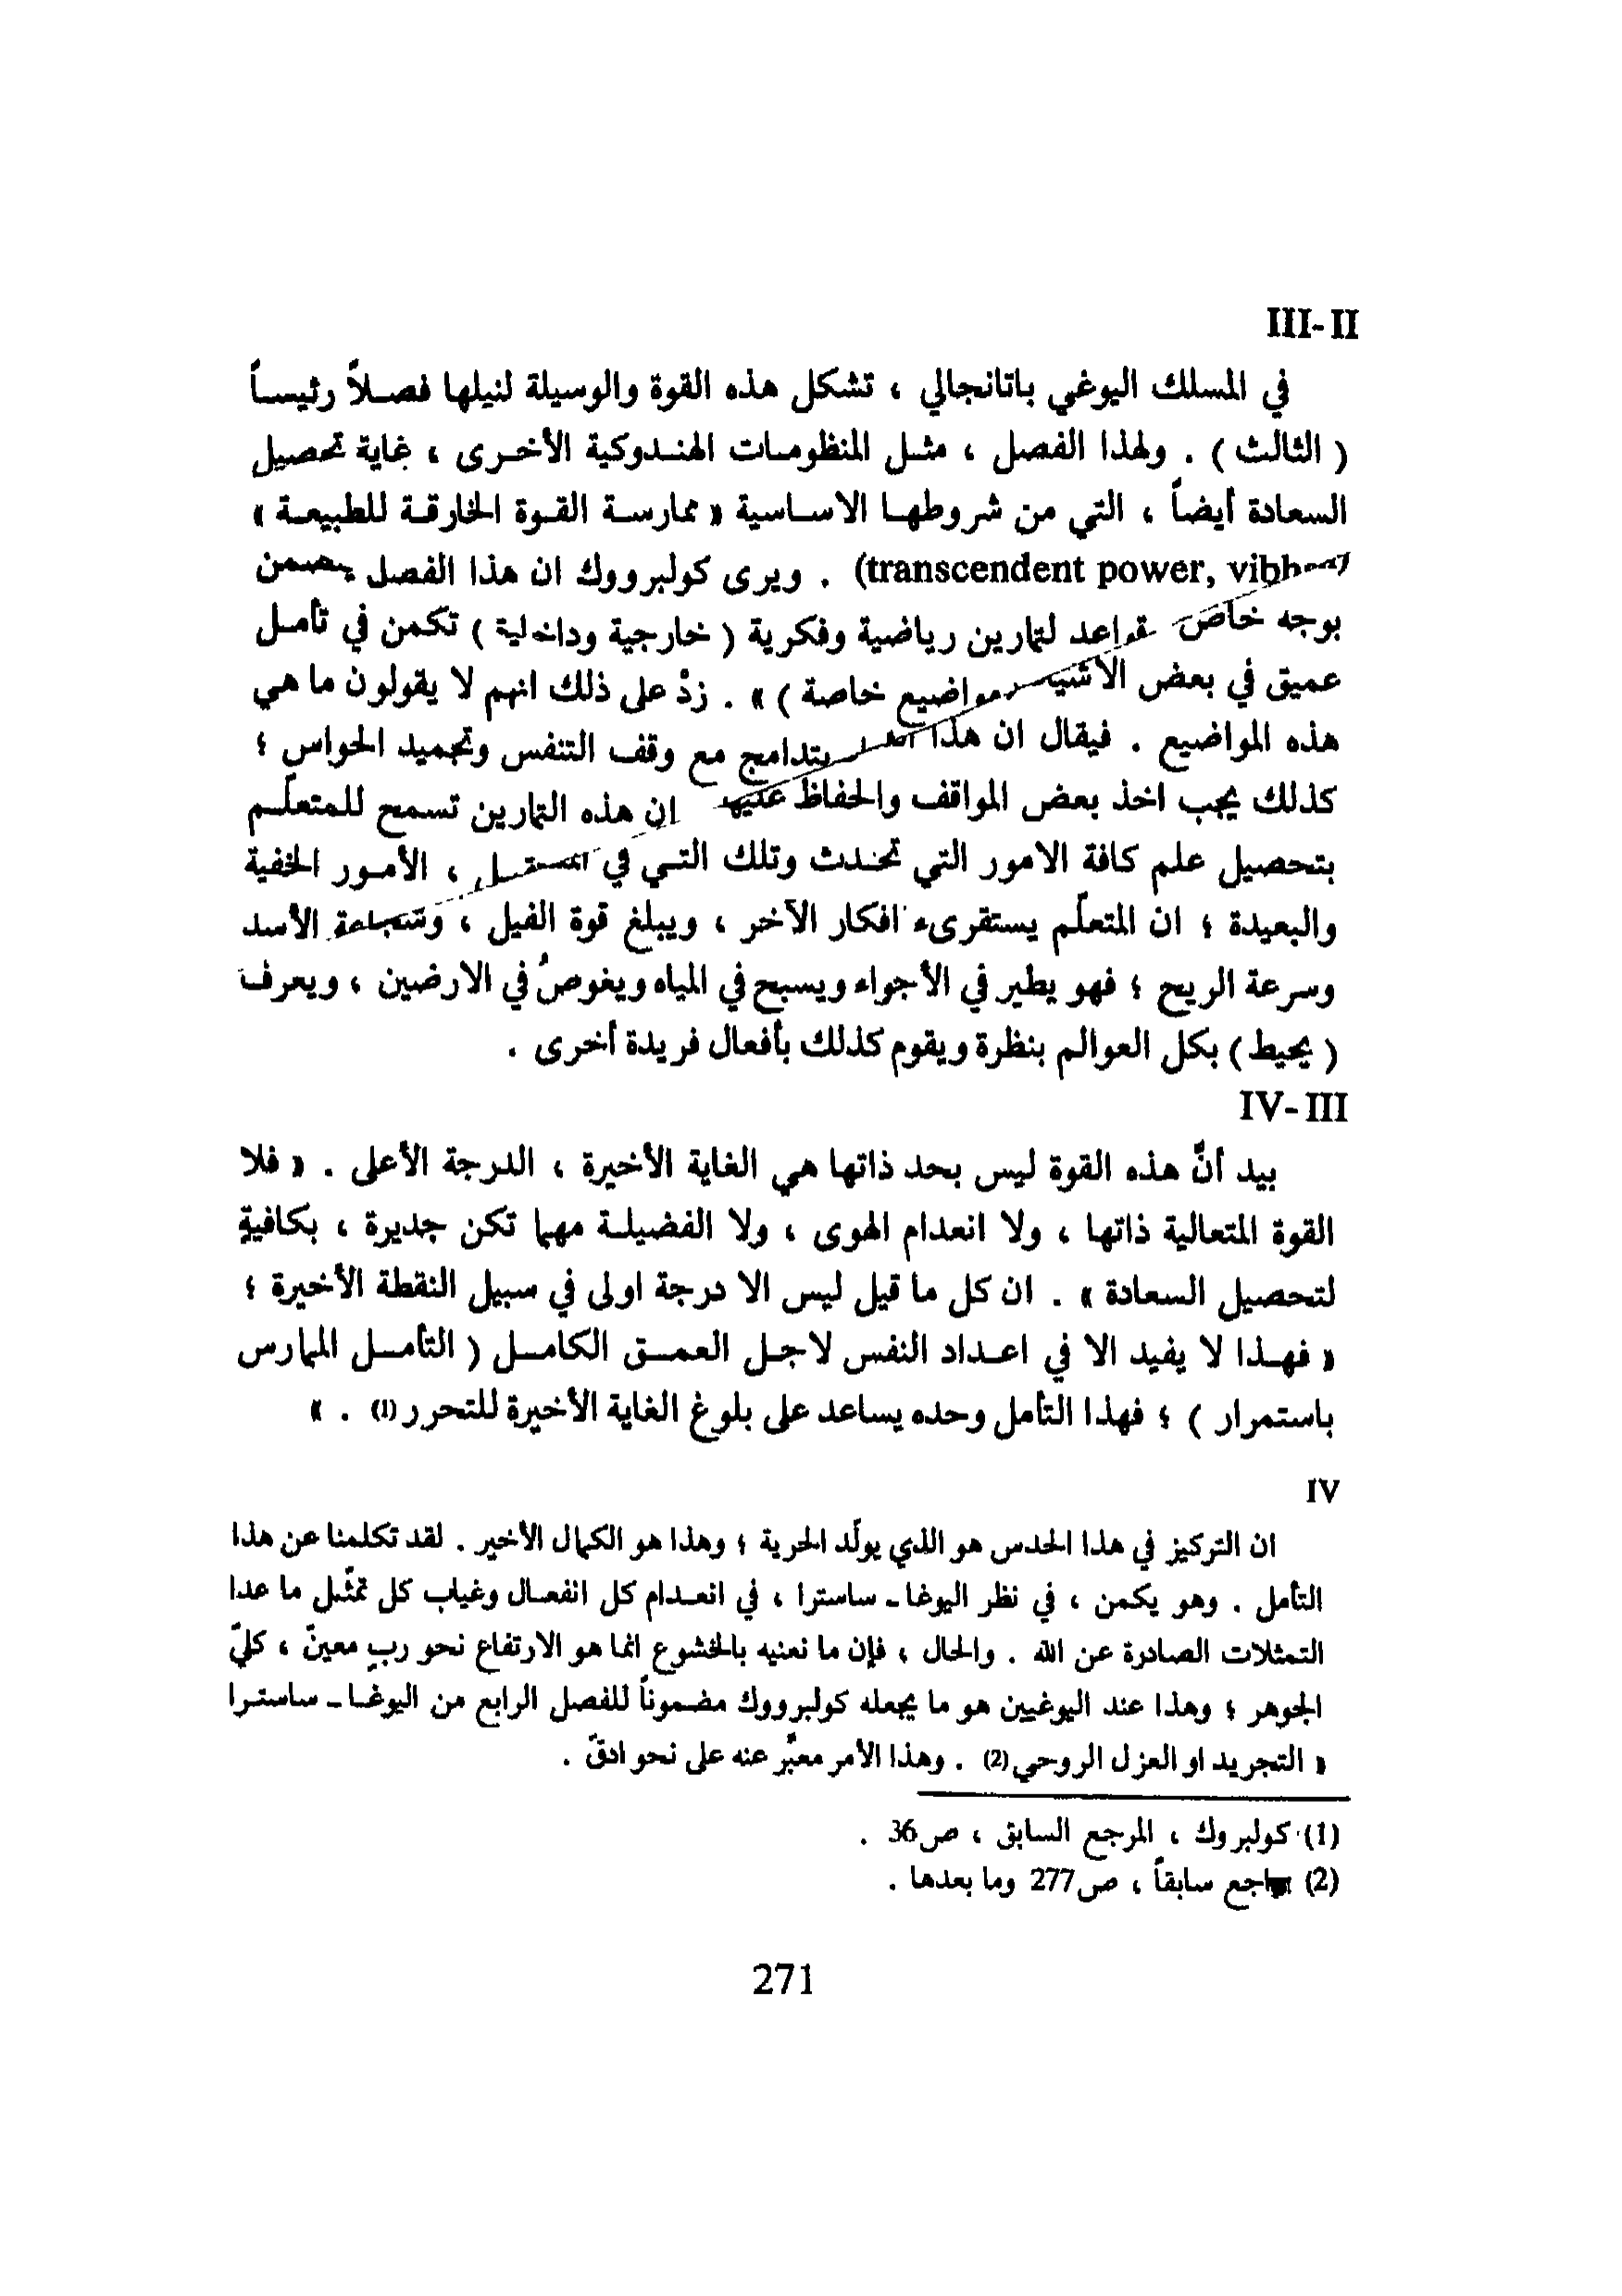 III-II
في المسلك اليوغي باتانجالي ، تشكل هذه القوة والوسيلة لنيلها فصلاً رئيساً
( الثالث ) . ولهذا الفصل ، مثل المنظومات الهندوكية الأخرى ، غاية تحصيل
السعادة أيضاً ، التي من شروطها الاساسية « ممارسة القوة الخارقة للطبيعة »
(transcendent power, . ويرى كولبرووك ان هذا الفصل
بوجه خاص قواعد لتمارين رياضية وفكرية ( خارجية وداخلية ) تكمن في تأمل
عميق في بعض مواضيع خاصة ) » . زدْ على ذلك انهم لا يقولون ما هي
هذه المواضيع . فيقال ان هذا يتدامج مع وقف التنفس وتجميد الحواس ؛
كذلك يجب اخذ بعض المواقف والحفاظ عليها ان هذه التمارين تسمح للمتعلّم
بتحصيل علم كافة الامور التي تحدث وتلك التي في ، الأمور الخفية
والبعيدة ؛ ان المتعلّم يستقرىء افكار الآخر ، ويبلغ قوة الفيل ، وشجاعة الأسد
وسرعة الريح ؛ فهو يطير في الأجواء ويسبح في المياه ويغوصُ في الارضين ، ويعرف
( يحيط ) بكل العوالم بنظرة ويقوم كذلك بأفعال فريدة أخرى .
IV-III
بيد أنَّ هذه القوة ليس بحد ذاتها هي الغاية الأخيرة ، الدرجة الأعلى . « فلا
القوة المتعالية ذاتها ، ولا انعدام الهوى ، ولا الفضيلة مهما تكن جديرة ، بكافيةٍ
لتحصيل السعادة » . ان كل ما قيل ليس الا درجة اولى في سبيل النقطة الأخيرة ؛
« فهذا لا يفيد الا في اعداد النفس لاجل العمق الكامل ( التأمل الممارس
باستمرار ) ؛ فهذا التأمل وحده يساعد على بلوغ الغاية الأخيرة للتحرر (1) . »
IV
ان التركيز في هذا الحدس هو الذي يولّد الحرية ؛ وهذا هو الكمال الأخير . لقد تكلمنا عن هذا
التأمل . وهو يكمن ، في نظر اليوغا ـ ساسترا ، في انعدام كل انفعال وغياب كل تمثّل ما عدا
التمثلات الصادرة عن الله . والحال ، فإن ما نعنيه بالخشوع انما هو الارتفاع نحو ربٍ معينّ ، كليّ
الجوهر ؛ وهذا عند اليوغيين هو ما يجعله كولبرووك مضموناً للفصل الرابع من اليوغا ـ ساسترا
« التجريد او العزل الروحي (2) . وهذا الأمر معبَّر عنه على نحو ادقّ .
(1) كولبروك ، المرجع السابق ، ص 36 .
(2) راجع سابقاً ، ص 277 وما بعدها .
271